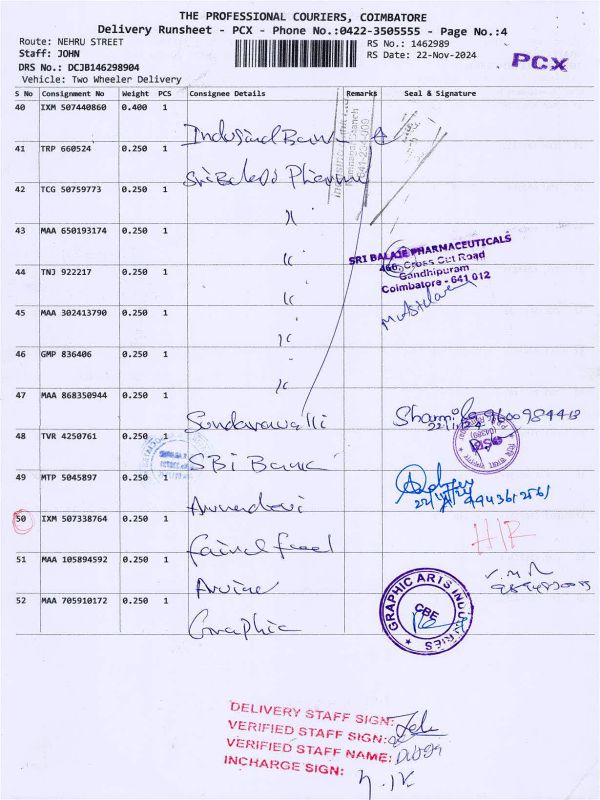 THE PROFESSIONAL COURIERS, COIMBATORE
Delivery Runsheet - PCX - Phone No.:0422-3505555 - Page No.:4
Route: NEHRU STREET
Staff: JOHN
DRS No.: DCJB146298904
Vehicle: Two Wheeler Delivery
RS No.: 1462989
RS Date: 22-Nov-2024
PCX
S No Consignment No Weight PCS Consignee Details Remarks Seal & Signature
40 IXM 507440860 0.400 1 IndusInd Bank
41 TRP 660524 0.250 1 Sri Balaji Pharma
42 TCG 50759773 0.250 1 "
43 MAA 650193174 0.250 1 "
SRI BALAJE PHARMACEUTICALS
460, Cross Cut Road
Gandhipuram
Coimbatore - 641 012
44 TNJ 922217 0.250 1 "
45 MAA 302413790 0.250 1 "
46 GMP 836406 0.250 1 "
47 MAA 868350944 0.250 1 Sundaravalli
22/11/24
48 TVR 4250761 0.250 1 SBI Bank
49 MTP 5045897 0.250 1
50 IXM 507338764 0.250 1
H/R
51 MAA 105894592 0.250 1
52 MAA 705910172 0.250 1 Graphic
GRAPHIC ARTS INDUSTRIES
CBE
DELIVERY STAFF SIGN:
VERIFIED STAFF SIGN:
VERIFIED STAFF NAME:
INCHARGE SIGN: